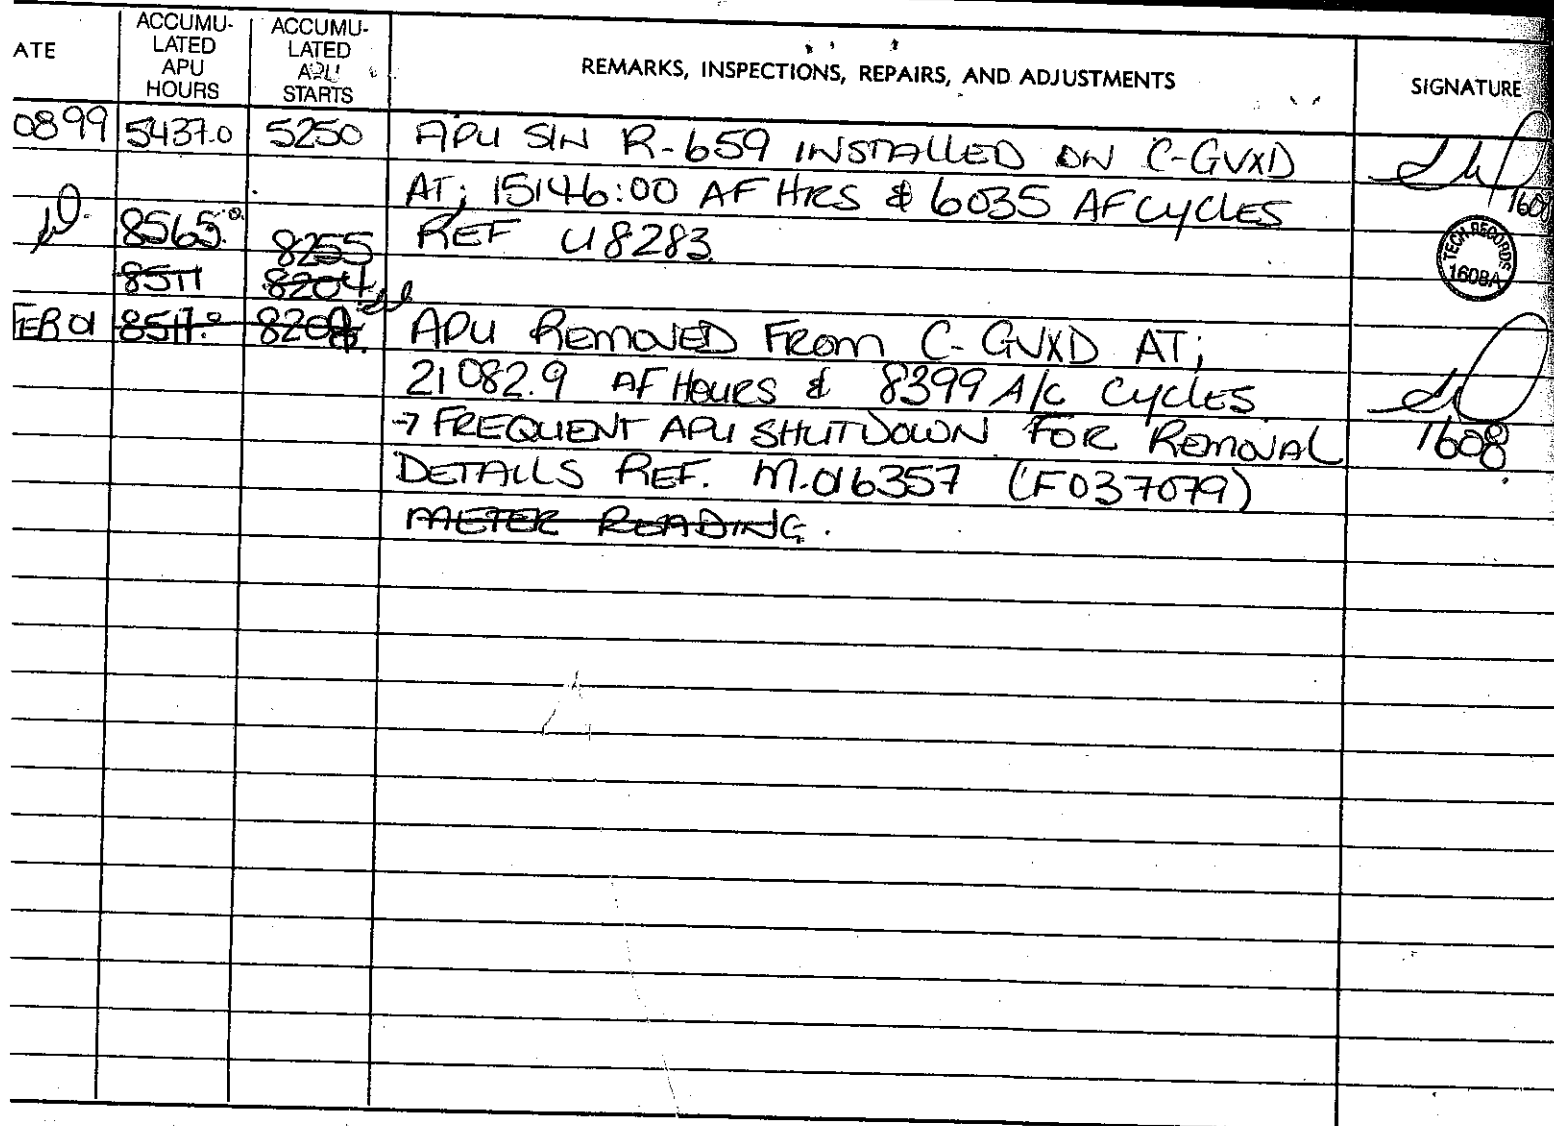 ATE
ACCUMU-
LATED
APU
HOURS
ACCUMU-
LATED
APU
STARTS
REMARKS, INSPECTIONS, REPAIRS, AND ADJUSTMENTS
SIGNATURE
0899 5437.0 5250 APU S/N R-659 INSTALLED ON C-GVXD
AT; 15146:00 AF HRS & 6035 AF CYCLES
1608
8565.0 8255 REF U8283
TECH. RECORDS
1608A
8511 8204
FEB 01 8511.0 8204 APU REMOVED FROM C-GVXD AT;
21082.9 AF HOURS & 8399 A/C CYCLES
→ FREQUENT APU SHUTDOWN FOR REMOVAL 1608
DETAILS REF. M.016357 (F037079)
METER READING.